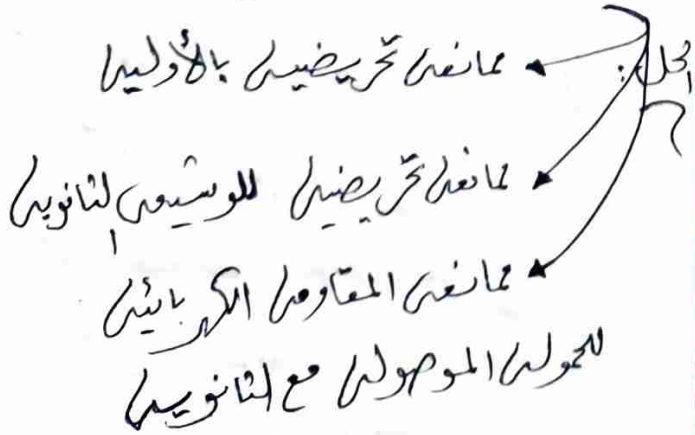 الحل: ممانعة تحريضية بالأولية
ممانعة تحريضية للوشيعة الثانوية
ممانعة المقاومة الكهربائية
للحمولة الموصولة مع الثانوية